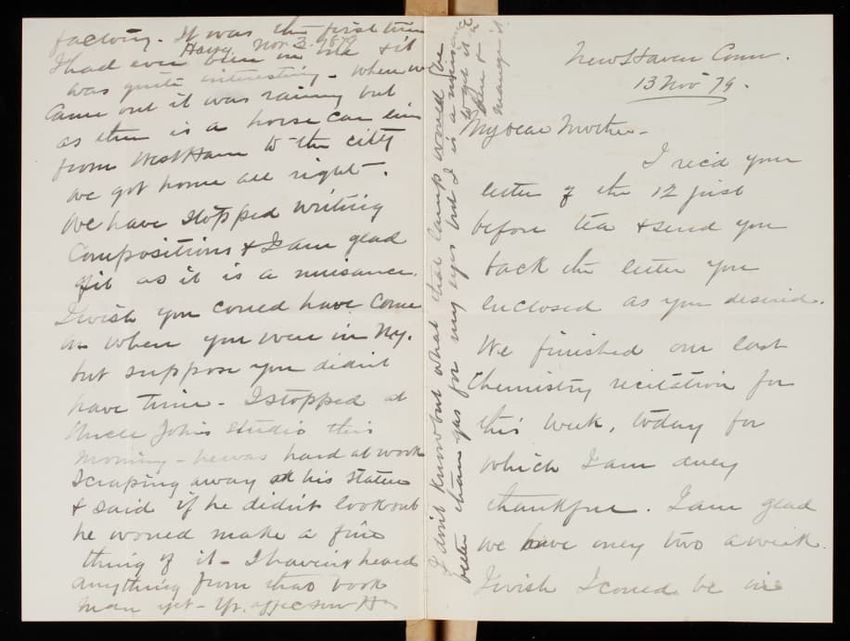 New Haven Conn.
13 Nov 79.
My dear Mother-
I rec'd your
letter of the 12 just
before tea & send you
back the letter you
enclosed as you desired.
We finished our last
Chemistry recitation for
this week, today for
which I am very
thankful. I am glad
we have only two a week.
I wish I could be in
factory. It was the first time
Nov. 3. 1879
I had ever been in one & it
was quite interesting - when we
Came out it was raining but
as there is a horse car line
from West Haven to the city
we got home all right.
We have stopped writing
Compositions & I am glad
of it as it is a nuisance.
I wish you could have come
on when you were in Ny.
but suppose you didn't
have time - I stopped at
Uncle John's studio this
morning - he was hard at work
scraping away at his statue
& said if he didn't look out
he would make a fine
thing of it - I haven't heard
anything from that book
man yet - Yr. aff. son
I don't know but what that lamp would be
better than gas for my eyes but it is a nuisance
to get it &
manage it.